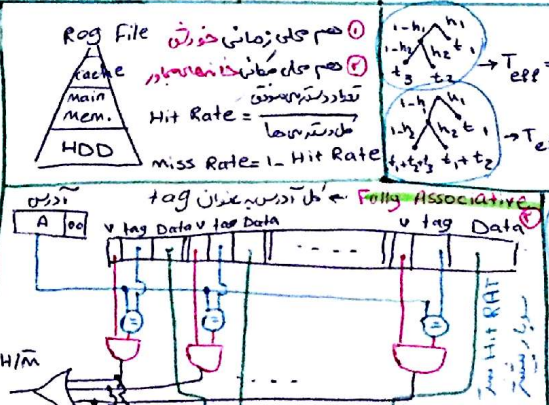 Reg File
cache
main
mem.
HDD
① هم محلی زمانی خودش
② هم محلی مکانی خانه‌های مجاور
Hit Rate = تعداد دسترسی موفق
کل دسترسی‌ها
miss Rate = 1 - Hit Rate
1-h₁ h₁
1-h₂ h₂ t₁
t₃ t₂
→ Teff =
1-h h₁
1-h₂ h₂ t₁
t₁+t₂+t₃ t₁+t₂
→ Te
Fully Associative ② کل آدرس به عنوان tag
آدرس
A 00
v tag Data v tag Data ---- v tag Data
= = =
H/m̄
....
Hit RAT